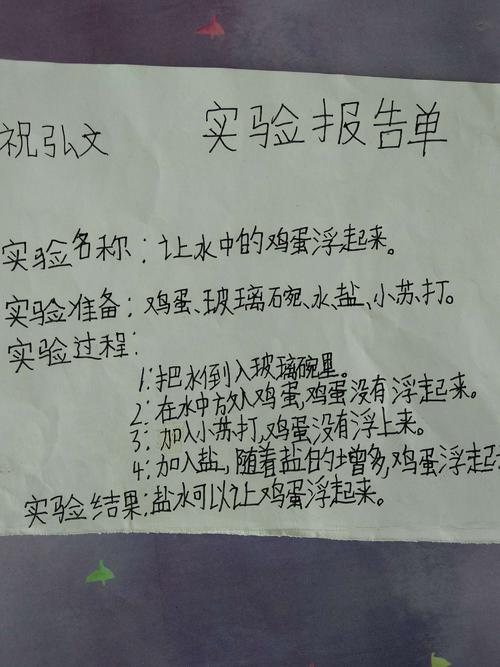 祝弘文 实验报告单
实验名称：让水中的鸡蛋浮起来。
实验准备：鸡蛋、玻璃碗、水、盐、小苏打。
实验过程：
1：把水倒入玻璃碗里。
2：在水中放入鸡蛋，鸡蛋没有浮起来。
3：加入小苏打，鸡蛋没有浮上来。
4：加入盐，随着盐的增多，鸡蛋浮起
实验结果：盐水可以让鸡蛋浮起来。